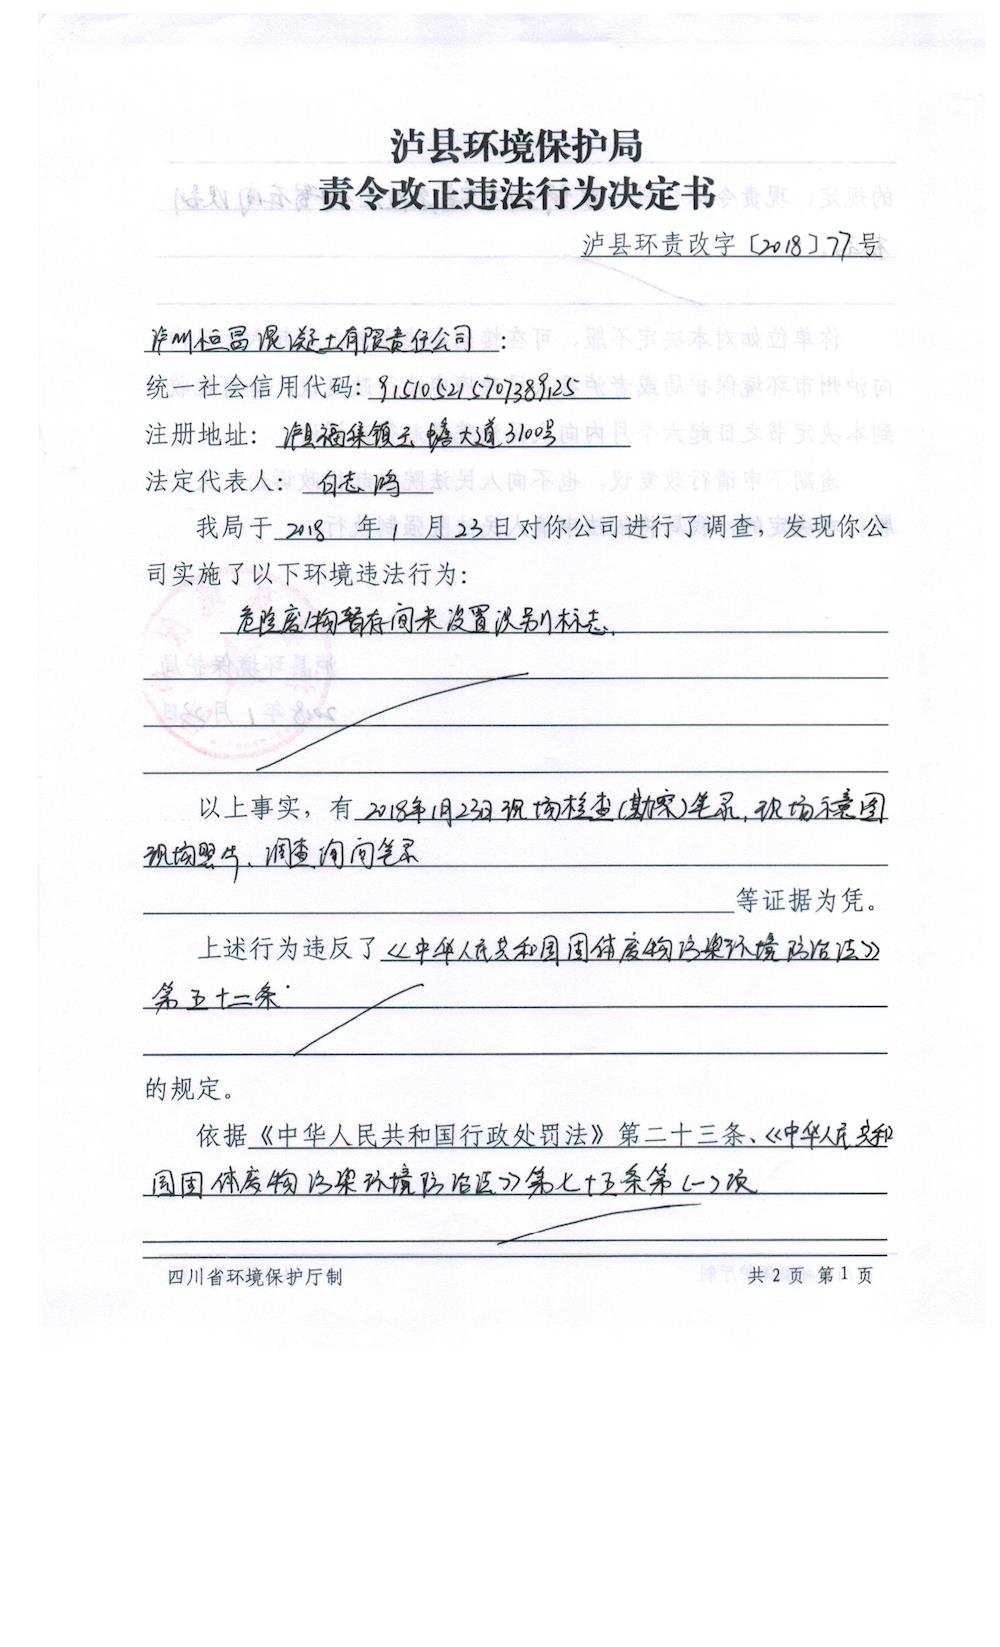 泸县环境保护局
责令改正违法行为决定书
泸县环责改字〔2018〕77号
泸州恒昌混凝土有限责任公司：
统一社会信用代码：915105215707389125
注册地址：泸县福集镇玉蟾大道3100号
法定代表人：
我局于2018年1月23日对你公司进行了调查，发现你公
司实施了以下环境违法行为：
危险废物暂存间未设置识别标志。
以上事实，有2018年1月23日现场检查(勘察)笔录、现场示意图
现场照片、调查询问笔录
等证据为凭。
上述行为违反了《中华人民共和国固体废物污染环境防治法》
第五十二条
的规定。
依据《中华人民共和国行政处罚法》第二十三条、《中华人民共和
国固体废物污染环境防治法》第七十五条第(一)项
四川省环境保护厅制
共2页 第1页